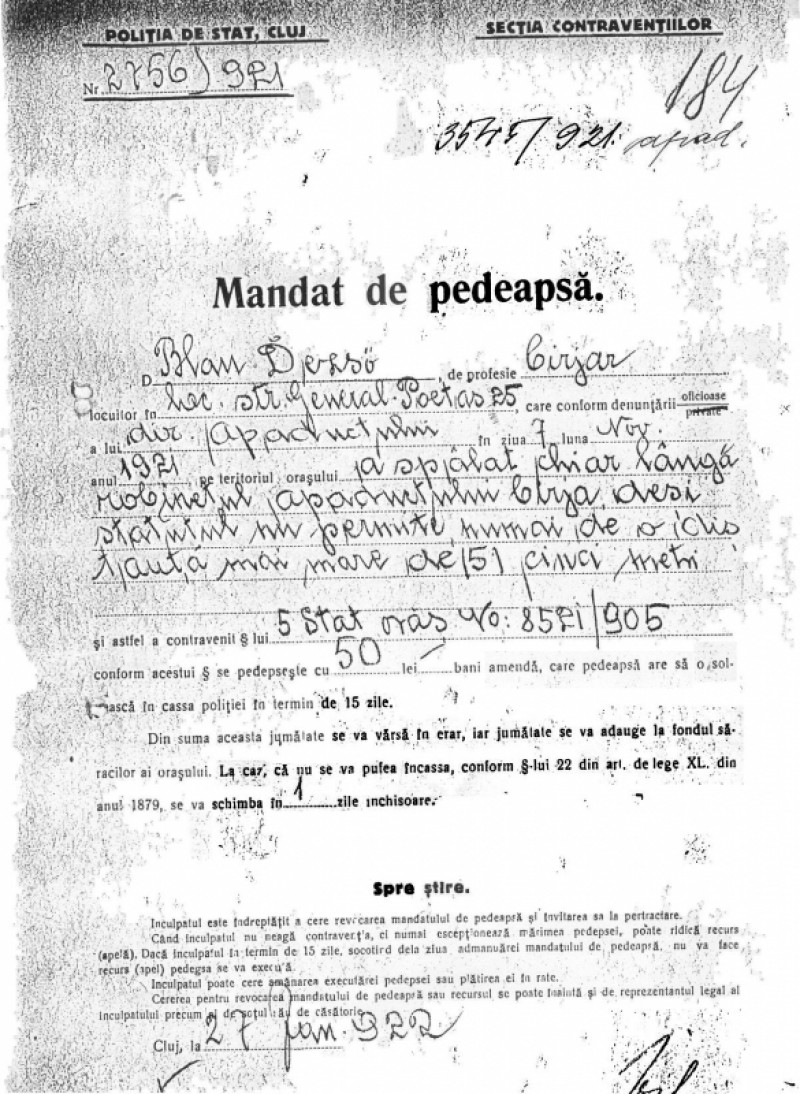 POLIȚIA DE STAT, CLUJ
SECȚIA CONTRAVENȚIILOR
Nr. 2756/921
184
3545/921. apad.
Mandat de pedeapsă.
D Blau Dezsö, de profesie Cirjar
locuitor în loc. str. General Poetas 25, care conform denunțării oficioase private
a lui dir. apaductului în ziua 7 luna Nov.
anul 1921, pe teritoriul orașului a spălat chiar lângă
robinetul apaductului Cirja, desi
statutul nu permite numai de o dis
tanță mai mare de (5) cinci metri
și astfel a contravenit § lui 5 Stat oraș No: 8521/905
conform acestui § se pedepsește cu 50 lei bani amendă, care pedeapsă are să o sol-
vească în cassa poliției în termin de 15 zile.
Din suma aceasta jumătate se va vărsă în erar, iar jumătate se va adauge la fondul să-
racilor ai orașului. La caz, că nu se va putea încassa, conform §-lui 22 din art. de lege XL. din
anul 1879, se va schimba în 1 zile inchisoare.
Spre știre.
Inculpatul este îndreptățit a cere revocarea mandatului de pedeapsă și invitarea sa la pertractare.
Când inculpatul nu neagă contravenția, ci numai escepționează mărimea pedepsei, poate ridică recurs
(apelă). Dacă inculpatul în termin de 15 zile, socotind dela ziua admanuărei mandatului de pedeapsă, nu va face
recurs (apel) pedeapsa se va execută.
Inculpatul poate cere amânarea executărei pedepsei sau plătirea ei în rate.
Cererea pentru revocarea mandatului de pedeapsă sau recursul se poate înaintă și de reprezentantul legal al
inculpatului precum și de soțul său de căsătorie.
Cluj, la 27 Jan. 922